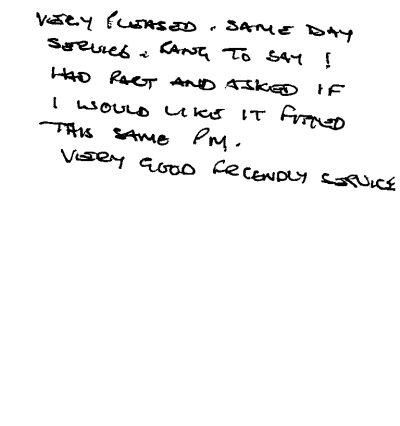 VERY PLEASED. SAME DAY
SERVICE. RANG TO SAY !
HAD PART AND ASKED IF
I WOULD LIKE IT FITTED
THIS SAME PM.
VERY GOOD FRIENDLY SERVICE